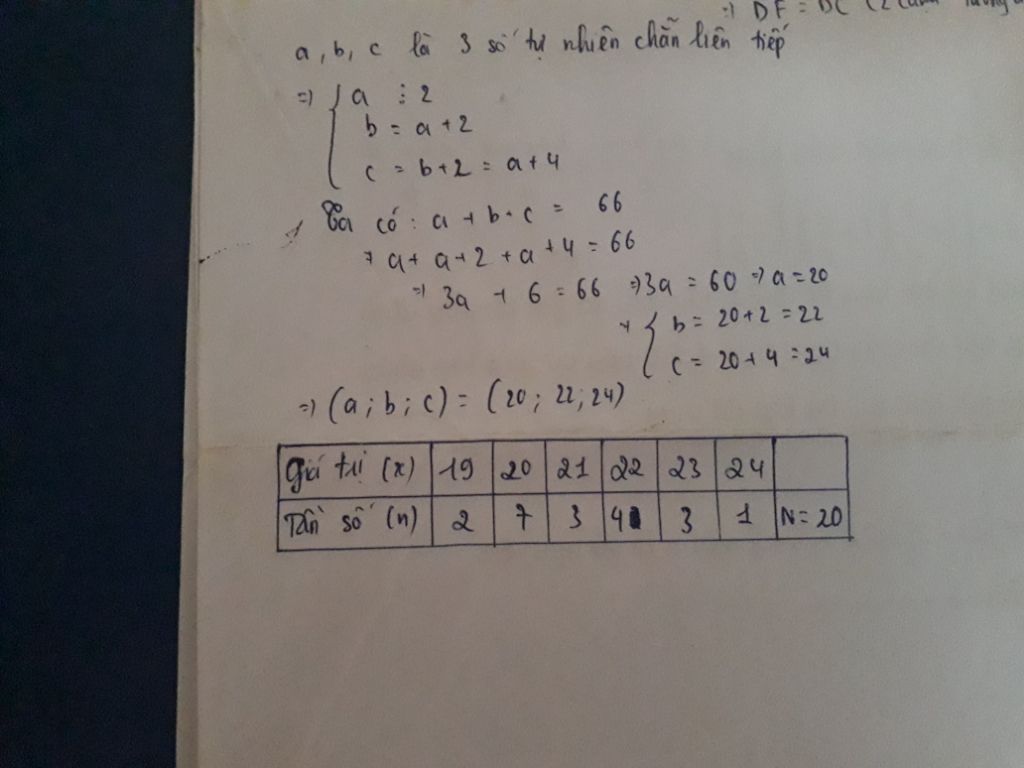 =) DF = DC (2
a, b, c là 3 số tự nhiên chẵn liên tiếp
=) { a ⋮ 2
b = a + 2
c = b + 2 = a + 4
Ta có : a + b + c = 66
=) a + a + 2 + a + 4 = 66
=) 3a + 6 = 66 =) 3a = 60 =) a = 20
=) { b = 20 + 2 = 22
c = 20 + 4 = 24
=) (a ; b ; c) = (20 ; 22 ; 24)
Giá trị (x) 19 20 21 22 23 24
Tần số (n) 2 7 3 4 3 1 N = 20